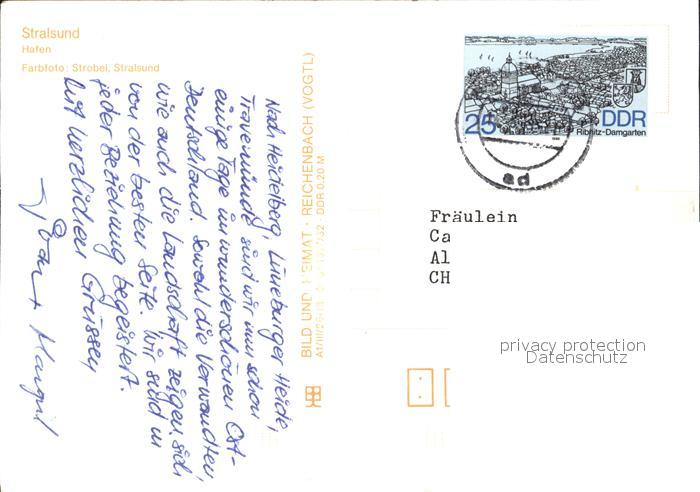 Stralsund
Hafen
Farbfoto: Strobel, Stralsund
Nach Heidelberg, Lüneburger Heide,
Travemünde sind wir nun schon
einige Tage im wunderschönen Ost-
Deutschland. Sowohl die Verwandten,
wie auch die Landschaft zeigen sich
von der besten Seite. Wir sind in
jeder Beziehung begeistert.
Mit herzlichen Grüssen
Margrit
BILD UND HEIMAT REICHENBACH (VOGTL)
A1/III/26/13 DDR 0,20 M
25 DDR
Ribnitz-Damgarten
ad
Fräulein
Ca
Al
CH
privacy protection
Datenschutz